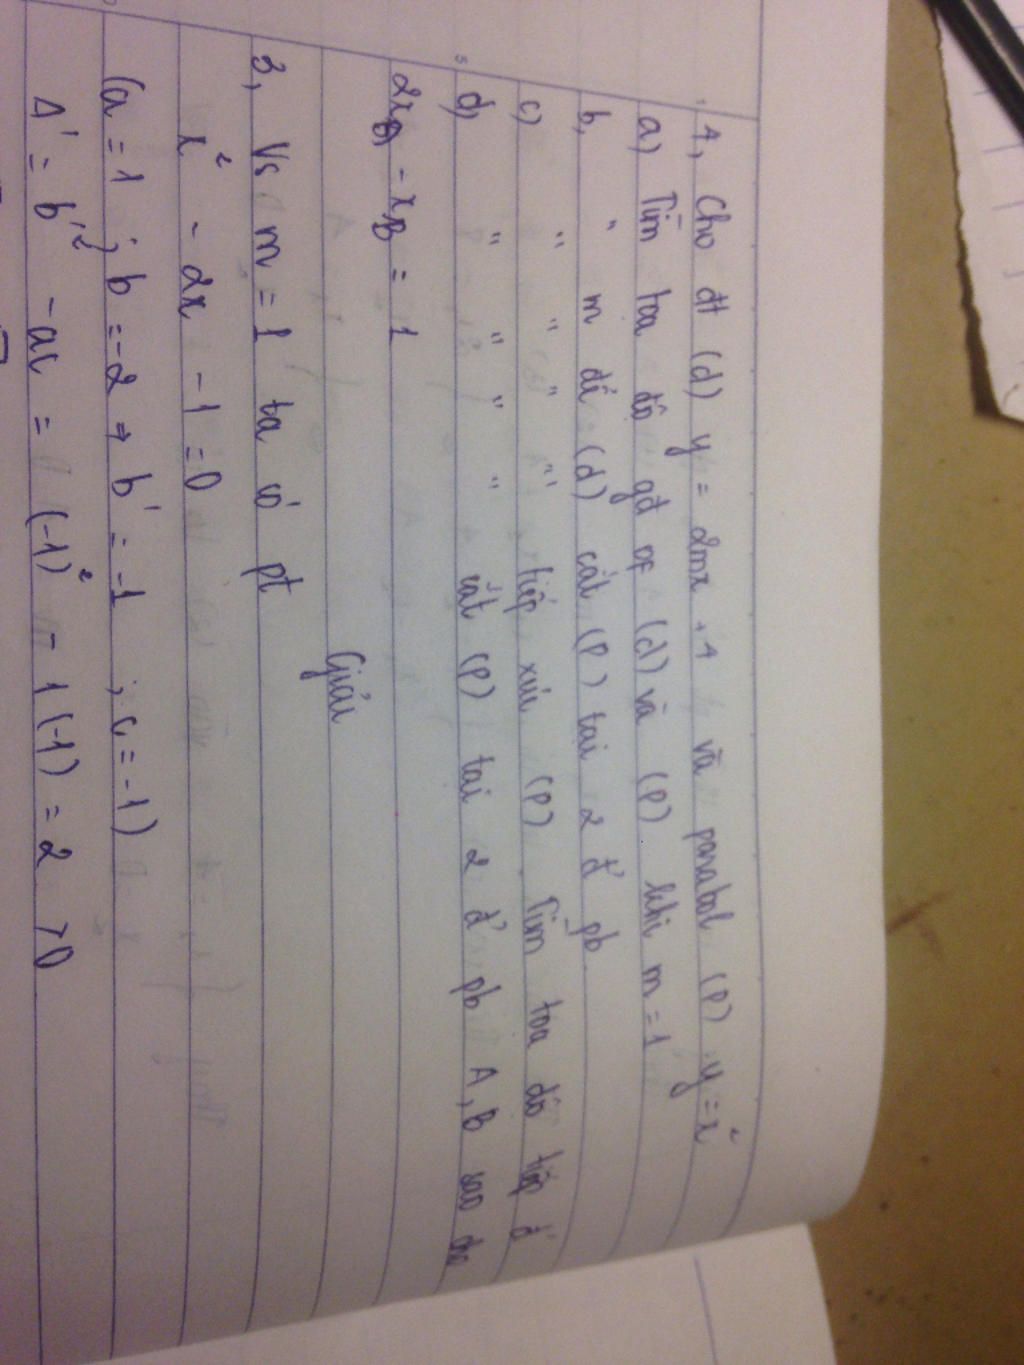 4, Cho đt (d) y = 2mx + 4 và parabol (P) y = x²
a) Tìm toạ độ gđ of (d) và (P) khi m = 1
b, " m để (d) cắt (P) tại 2 đ' pb
c) " " " " tiếp xúc (P) Tìm toạ độ tiếp đ'
d, " " " " cắt (P) tại 2 đ' pb A, B sao cho
2x - x_B = 1
Giải
3, Vs m = 1 ta có pt
x² - 2x - 1 = 0
(a = 1 ; b = -2 ⇒ b' = -1 ; c = -1)
Δ' = b'² - ac = (-1)² - 1(-1) = 2 > 0